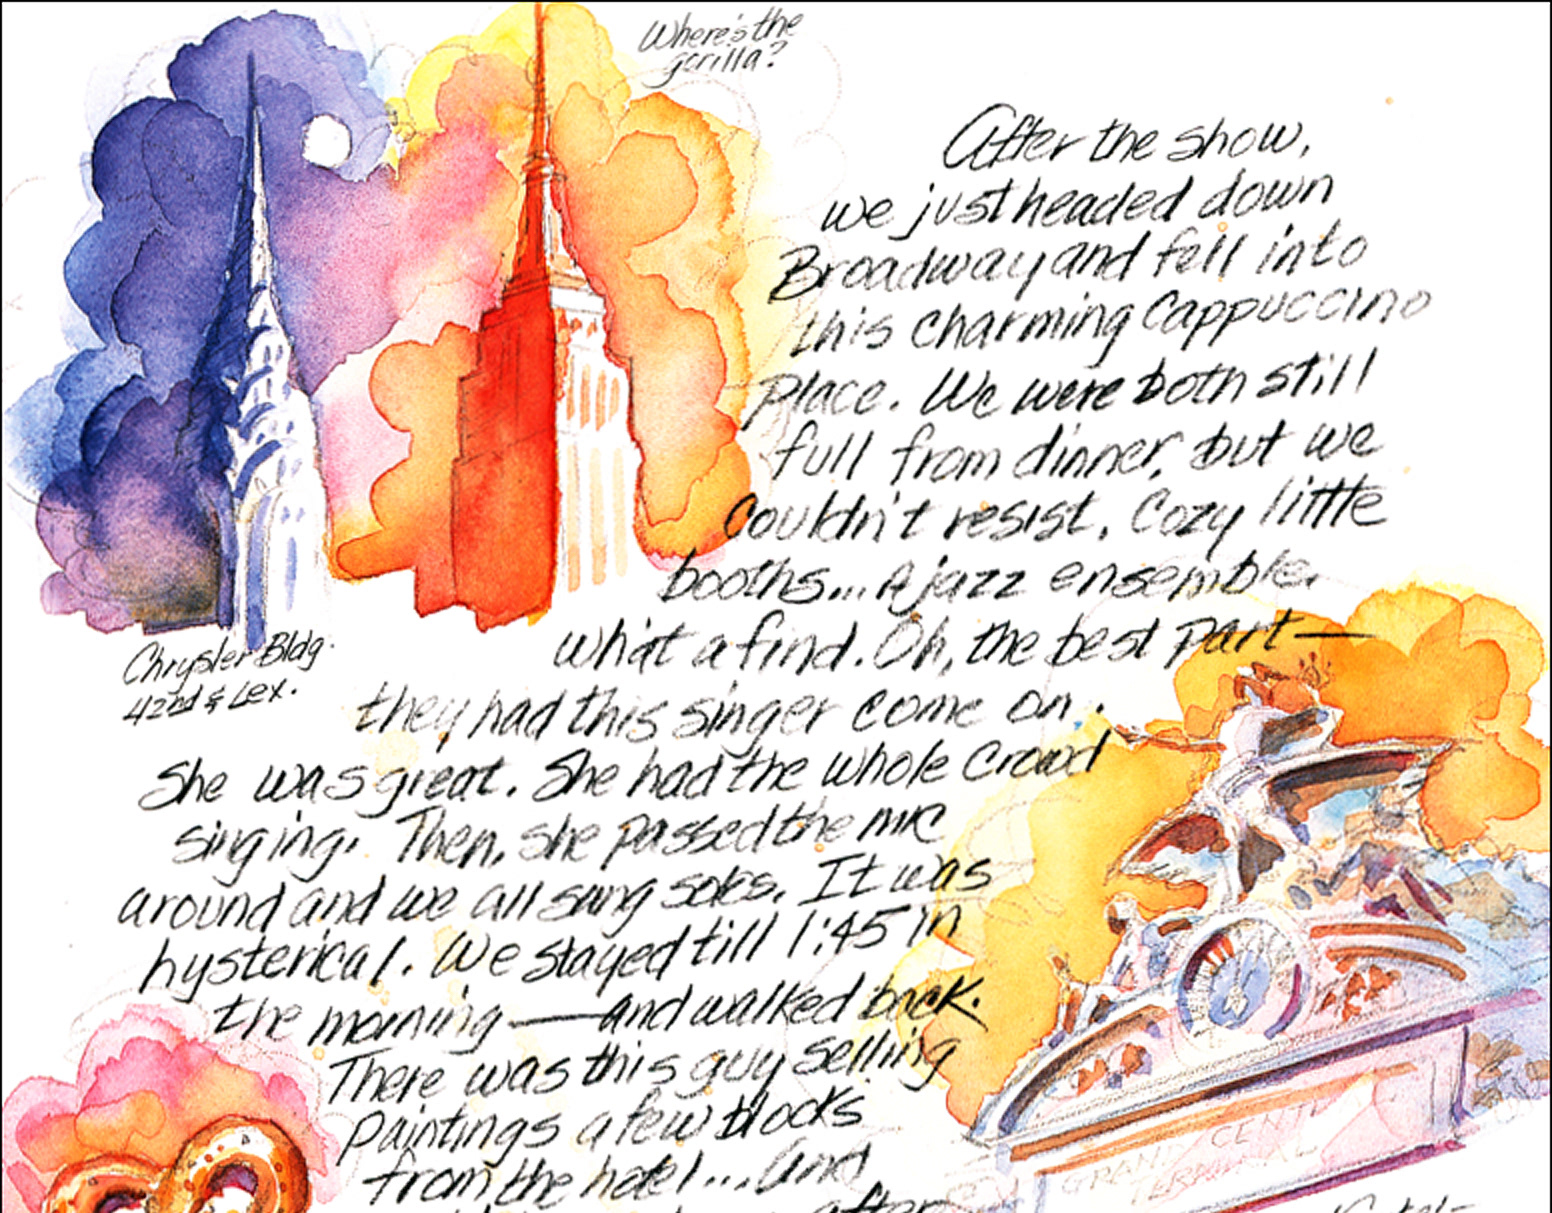 Where's the
gorilla?
After the show,
we just headed down
Broadway and fell into
this charming cappuccino
place. We were both still
full from dinner, but we
couldn't resist. Cozy little
booths... A jazz ensemble.
What a find. Oh, the best part—
they had this singer come on.
She was great. She had the whole crowd
singing. Then, she passed the mic
around and we all sang solos. It was
hysterical. We stayed till 1:45 in
the morning — and walked back.
There was this guy selling
paintings a few blocks
from the hotel... And
after
Chrysler Bldg.
42nd & Lex.
GRAND CENT
TERMINAL